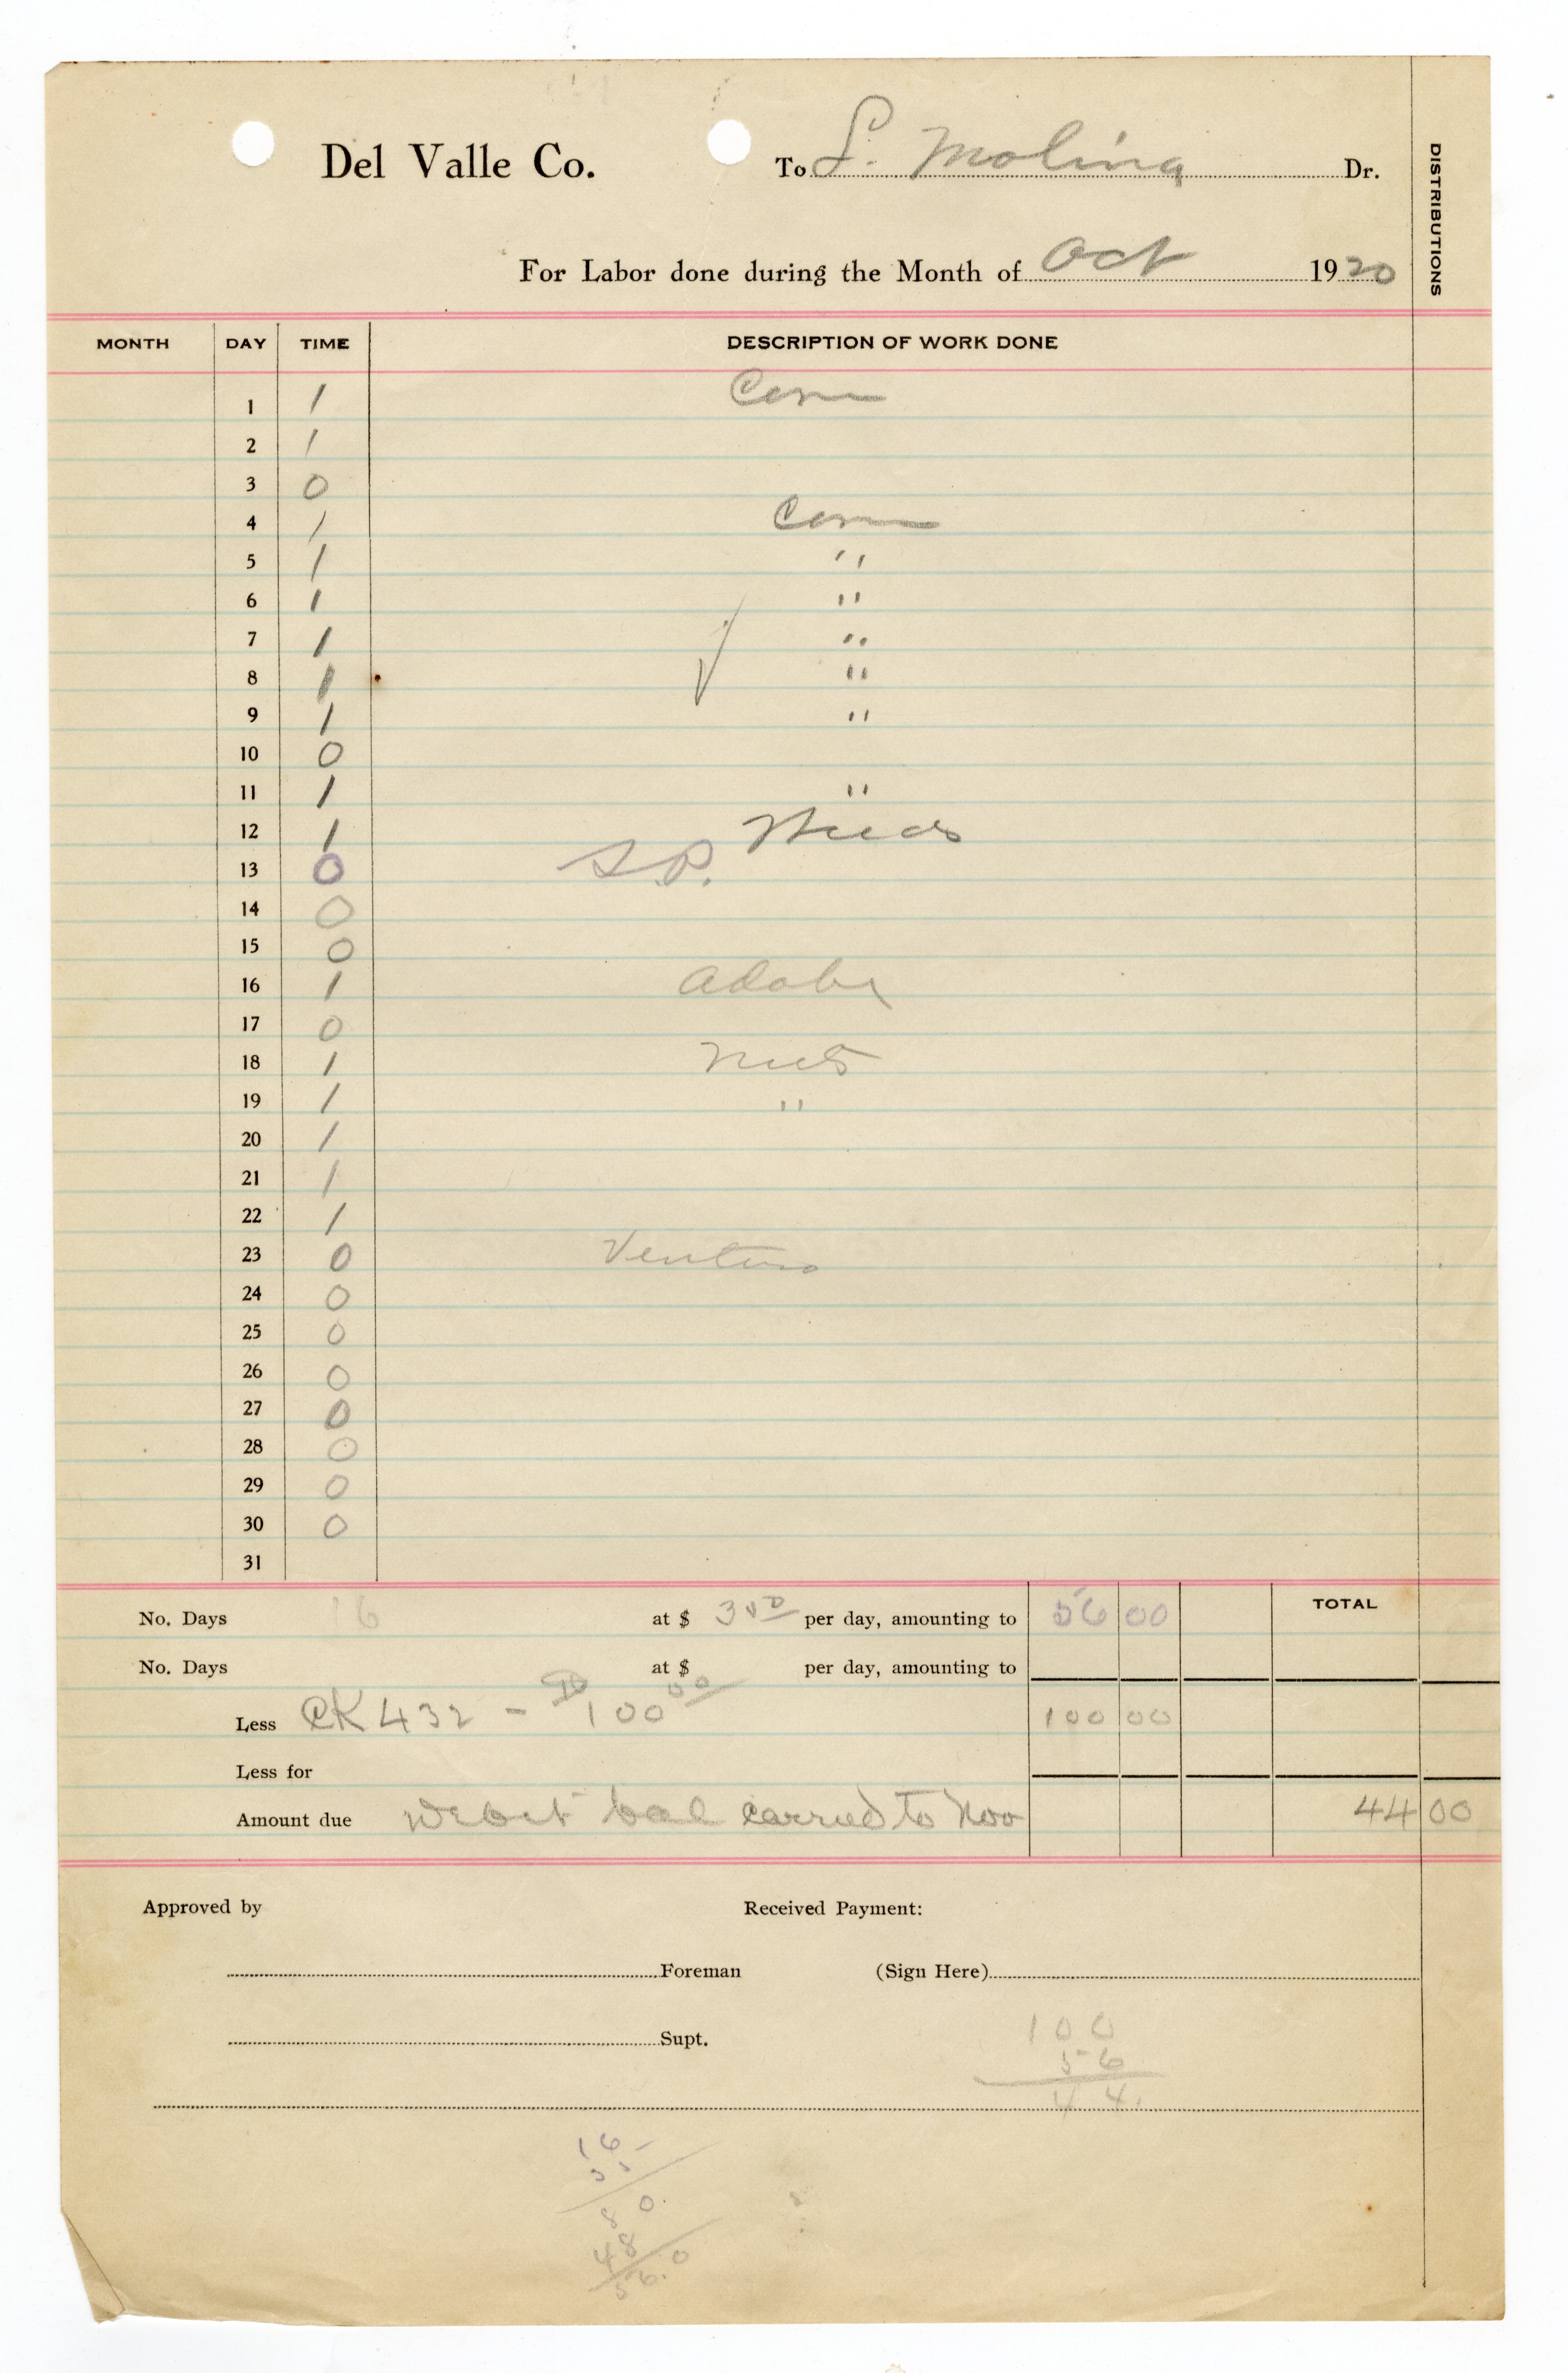 Del Valle Co. To L. Molina Dr.
DISTRIBUTIONS
For Labor done during the Month of Oct 1920
MONTH DAY TIME DESCRIPTION OF WORK DONE
1 1 Corn
2 1
3 0
4 1 Corn
5 1 "
6 1 "
7 1 "
8 1 "
9 1 "
10 0
11 1 "
12 1 Weeds
13 0 S.P.
14 0
15 0
16 1 Adobe
17 0
18 1 Nuts
19 1 "
20 1
21 1
22 1
23 0 Ventura
24 0
25 0
26 0
27 0
28 0
29 0
30 0
31
No. Days 16 at $ 3 50 per day, amounting to 56 00 TOTAL
No. Days at $ per day, amounting to
Less CK 432 - 100 00 100 00
Less for
Amount due Debit bal carried to Nov 44 00
Approved by Received Payment:
Foreman (Sign Here)
Supt.
100
56
44.
16
35
80
48
56.0